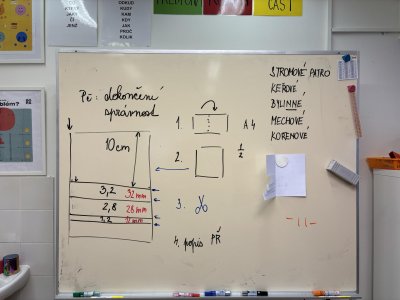 JAK?
ČÍ?
JENŽ
ODKUD
KUDY
KAM
KDY
JAK
PROČ
KOLIK
ČÁST
Pč: dokončení
správnost
10cm
3,2 32 mm
2,8 28 mm
1. A4
2. 1/2
3.
4. popis PŘ
STROMOVÉ PATRO
KEŘOVÉ
BYLINNÉ
MECHOVÉ
KOŘENOVÉ
-11-